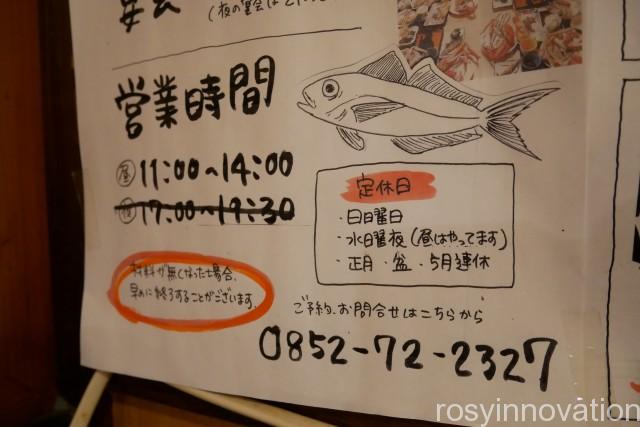 宴会
(夜の宴会は
営業時間
昼 11:00~14:00
夜 17:00~19:30
材料が無くなった場合、
早めに終了することがございます。
定休日
・日曜日
・水曜夜(昼はやってます)
・正月・盆・5月連休
ご予約、お問合せはこちらから
0852-72-2327
rosyinnovation